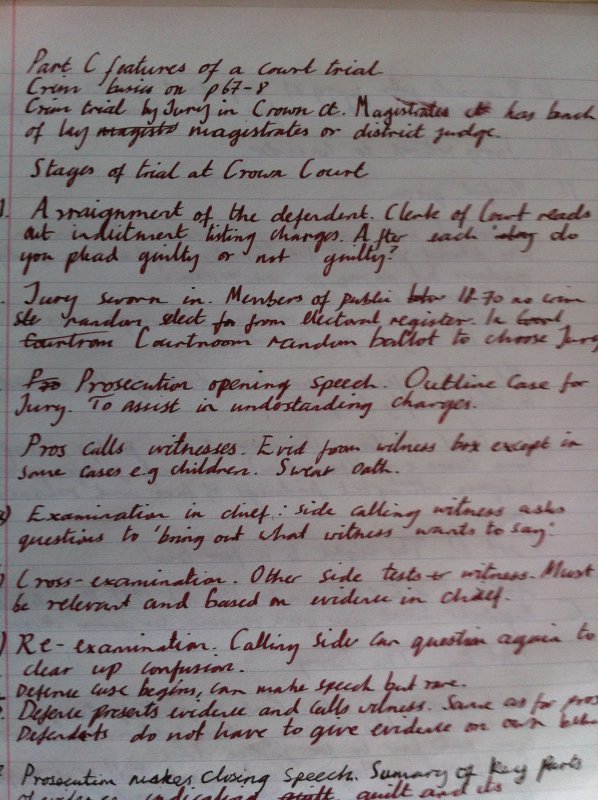 Part C features of a court trial
Crim basics on p67-8
Crim trial by Jury in Crown Ct. Magistrates ct has bench
of lay magists magistrates or district judge.
Stages of trial at Crown Court
1. Arraignment of the defendent. Clerk of Court reads
out indictment listing charges. After each do
you plead guilty or not guilty?
Jury sworn in. Members of public 18-70 no crim
random select from electoral register. In
Courtroom Courtroom random ballot to choose Jury
Prosecution opening speech. Outline case for
Jury. To assist in understanding charges.
Pros calls witnesses. Evid from witness box except in
some cases e.g children. Swear oath.
a) Examination in chief: side calling witness asks
questions to 'bring out what witness wants to say'.
) Cross-examination. Other side tests witness. Must
be relevant and based on evidence in chief.
) Re-examination. Calling side can question again to
clear up confusion.
Defense case begins, can make speech but rare.
Defense presents evidence and calls witness. Same as for pros
Defendants do not have to give evidence on own
Prosecution makes closing speech. Summary of key parts
of evidence indicating guilt and its